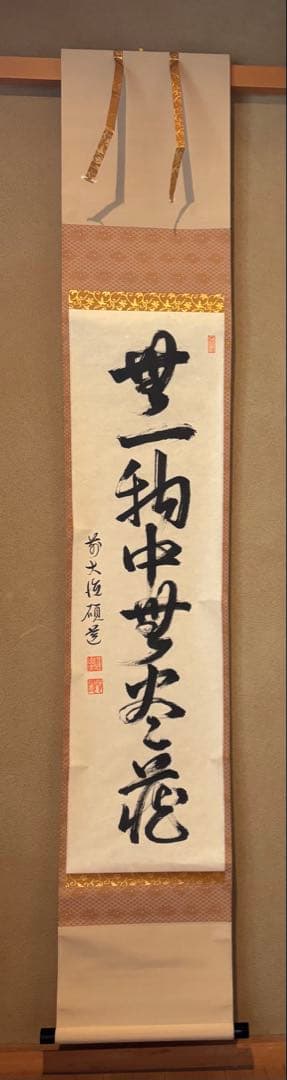 無一物中無尽蔵
前大徳碩道